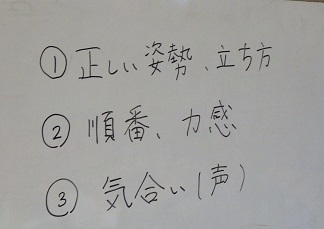 ①正しい姿勢、立ち方
②順番、力感
③気合い(声)